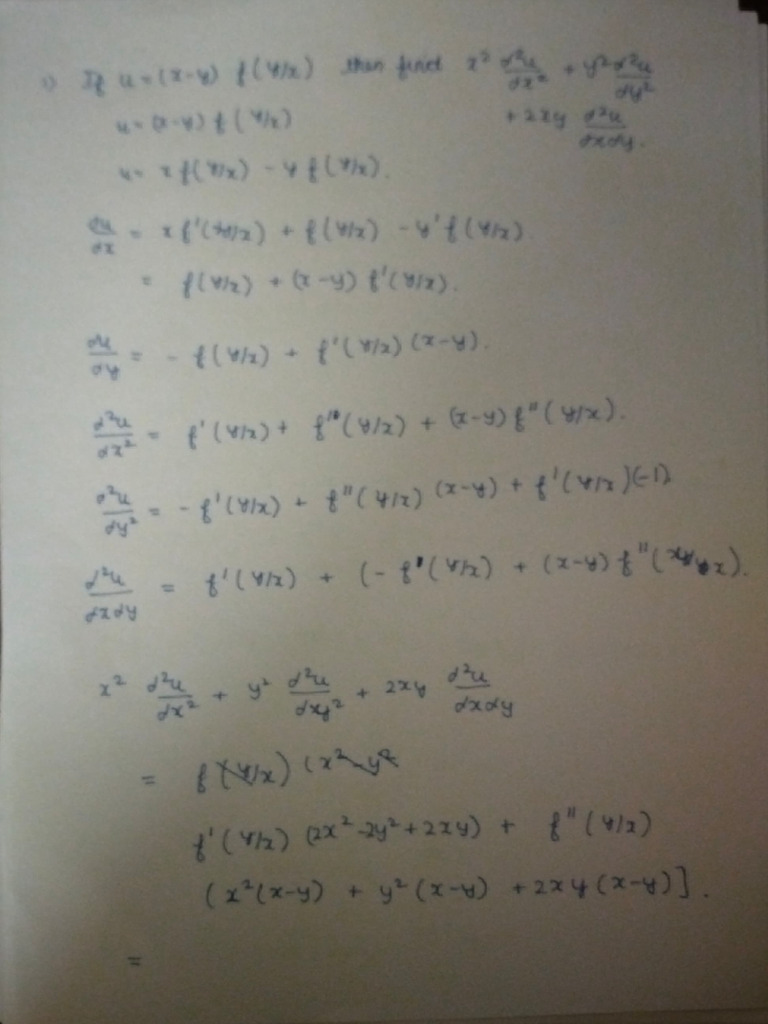 1) If u = (x-y) f(y/x) then find x² d²u/dx² + y² d²u/dy²
+ 2xy d²u/dxdy.
u = (x-y) f(y/x)
u = x f(y/x) - y f(y/x).
du/dx = x f'(y/x) + f(y/x) - y' f(y/x)
= f(y/x) + (x-y) f'(y/x).
du/dy = - f(y/x) + f'(y/x) (x-y).
d²u/dx² = f'(y/x) + f'(y/x) + (x-y) f''(y/x).
d²u/dy² = - f'(y/x) + f''(y/x) (x-y) + f'(y/x)(-1)
d²u/dxdy = f'(y/x) + (- f'(y/x) + (x-y) f''(y/x).
x² d²u/dx² + y² d²u/dxy² + 2xy d²u/dxdy
= f(y/x) (x² - y²
f'(y/x) (2x² - 2y² + 2xy) + f''(y/x)
(x²(x-y) + y²(x-y) + 2xy(x-y)].
=